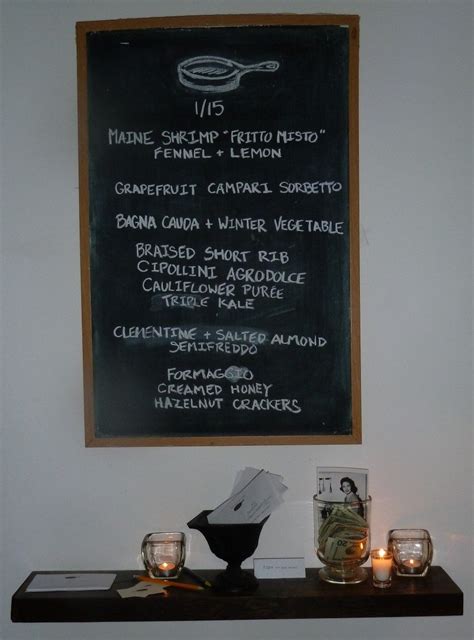 1/15
MAINE SHRIMP "FRITTO MISTO"
FENNEL + LEMON
GRAPEFRUIT CAMPARI SORBETTO
BAGNA CAUDA + WINTER VEGETABLE
BRAISED SHORT RIB
CIPOLLINI AGRODOLCE
CAULIFLOWER PURÉE
TRIPLE KALE
CLEMENTINE + SALTED ALMOND
SEMIFREDDO
FORMAGGIO
CREAMED HONEY
HAZELNUT CRACKERS
20